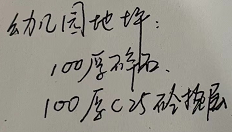 幼儿园地坪:
100厚碎石.
100厚C25砼垫层